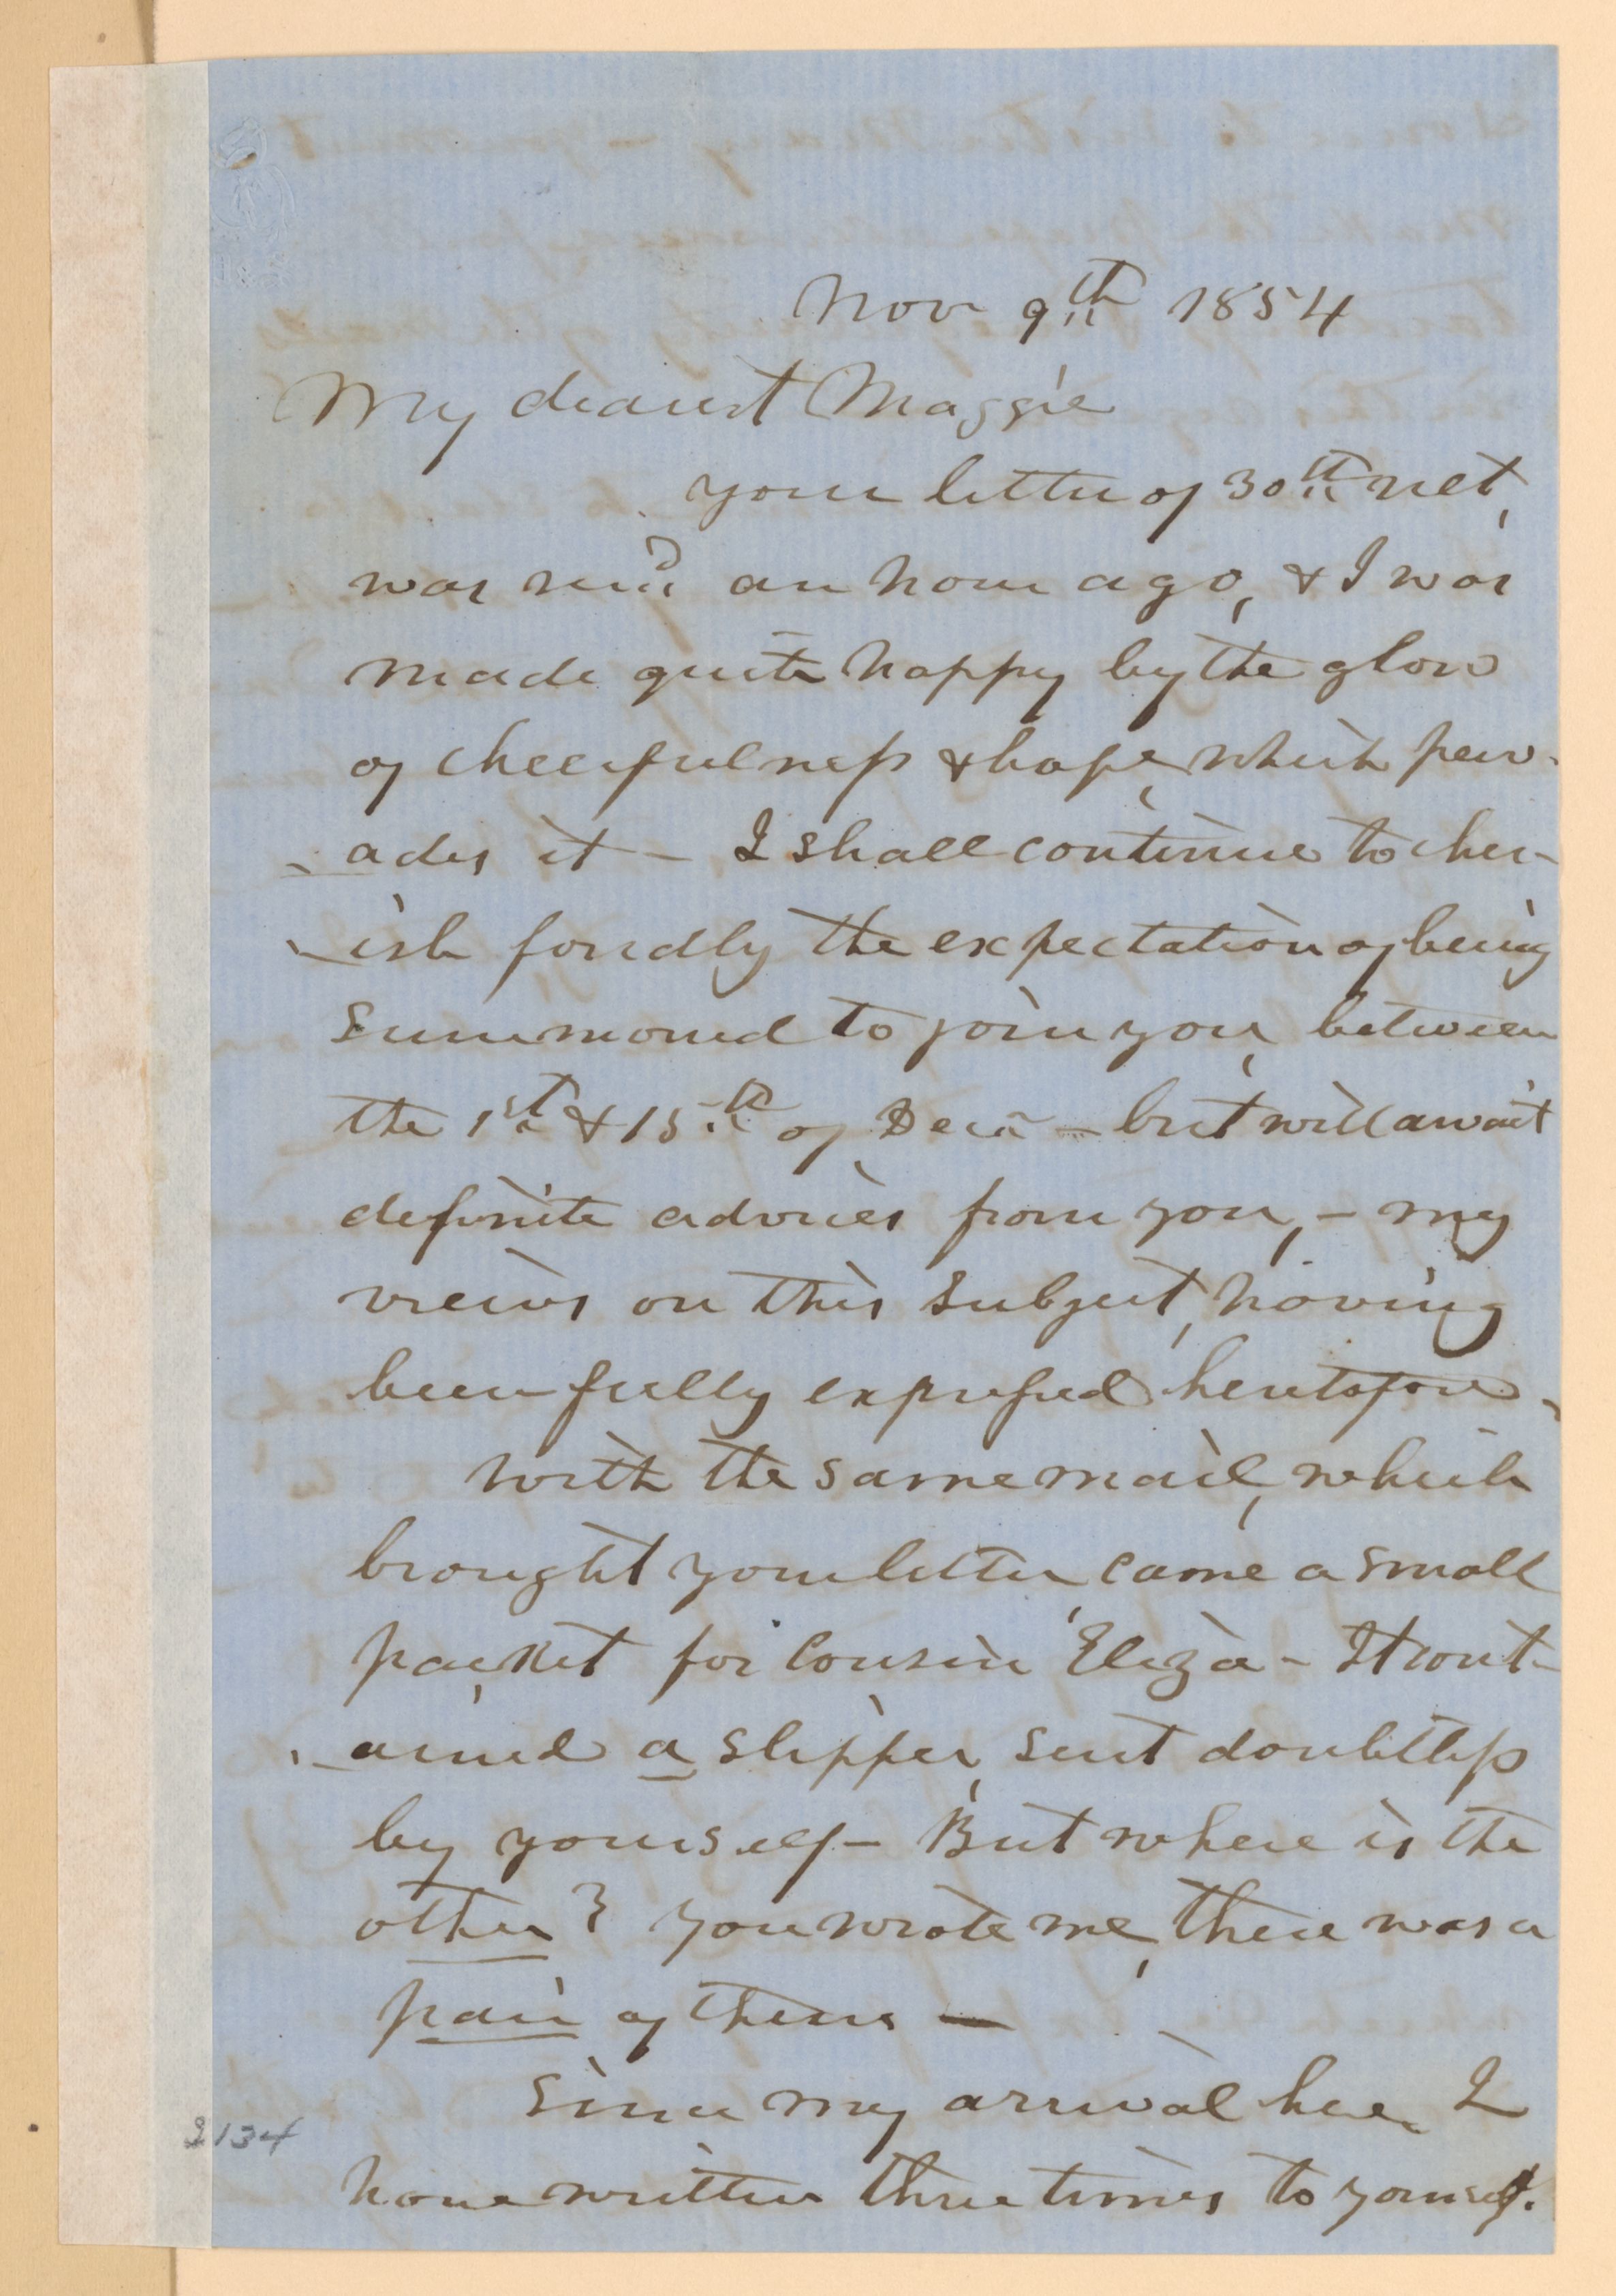 Nov 9th 1854
My dearest Maggie
your letter of 30th ult,
was rec'd an hour ago, & I was
made quite happy by the glow
of cheerfulness & hope, which perv-
-ades it - I shall continue to cher-
-ish fondly the expectation of being
summoned to join you, between
the 1st & 15th of Decr - but will await
definite advices from you, - my
views on this subject, having
been fully expressed heretofore.
With the same mail, which
brought your letter, came a small
packet for Cousin Eliza - It cont-
-ained a slipper, sent doubtless
by yourself - But where is the
other? You wrote me, there was a
pair of them -
Since my arrival here, I
have written three times to yourself.
2134